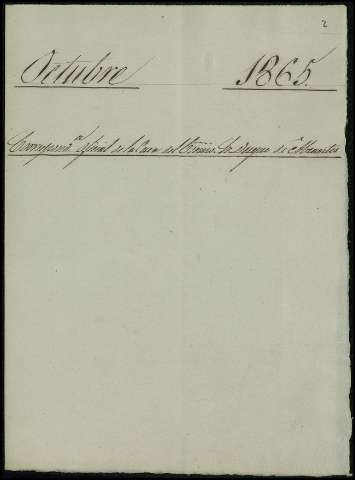 2
Octubre 1865.
Correspond.ª oficial de la Casa del Exmo. Sr. Duque de Abrantes